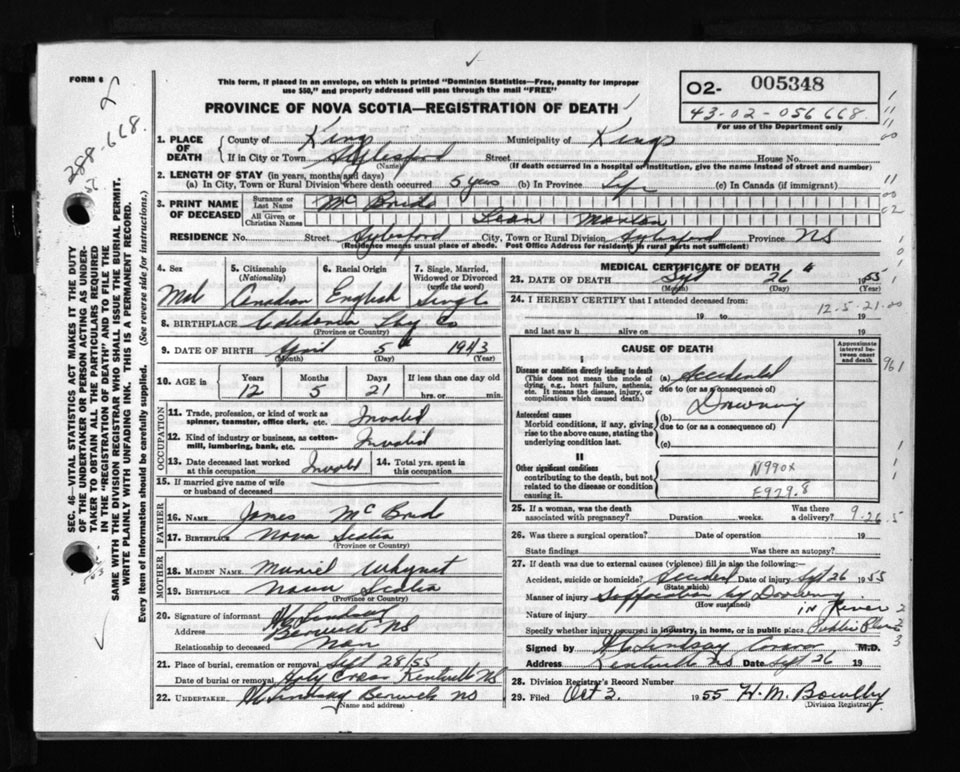 FORM 6
This form, if placed in an envelope, on which is printed "Dominion Statistics—Free, penalty for improper
use $50," and properly addressed will pass through the mail "FREE"
PROVINCE OF NOVA SCOTIA—REGISTRATION OF DEATH
O2- 005348
43-02-056668
For use of the Department only
288-668.
SEC. 46—VITAL STATISTICS ACT MAKES IT THE DUTY
OF THE UNDERTAKER OR PERSON ACTING AS UNDER-
TAKER TO OBTAIN ALL THE PARTICULARS REQUIRED
IN THE "REGISTRATION OF DEATH" AND TO FILE THE
SAME WITH THE DIVISION REGISTRAR WHO SHALL ISSUE THE BURIAL PERMIT.
WRITE PLAINLY WITH UNFADING INK. THIS IS A PERMANENT RECORD.
Every item of information should be carefully supplied. (See reverse side for instructions.)
1. PLACE OF DEATH County of Kings Municipality of Kings
If in City or Town Aylesford Street House No.
(Name) (If death occurred in a hospital or institution, give the name instead of street and number)
2. LENGTH OF STAY (in years, months and days)
(a) In City, Town or Rural Division where death occurred 5 years (b) In Province Life (c) In Canada (if immigrant)
3. PRINT NAME OF DECEASED Surname or Last Name McBride
All Given or Christian Names Maxton
RESIDENCE No. Street Aylesford City, Town or Rural Division Aylesford Province NS
(Residence means usual place of abode. Post Office Address for residents in rural parts not sufficient)
4. Sex 5. Citizenship (Nationality) 6. Racial Origin 7. Single, Married, Widowed or Divorced (write the word)
Male Canadian English Single
8. BIRTHPLACE Caledonia Co
(Province or Country)
9. DATE OF BIRTH April 5th 1943
(Month) (Day) (Year)
10. AGE in Years Months Days If less than one day old
12 5 21 hrs. or min.
OCCUPATION
11. Trade, profession, or kind of work as spinner, teamster, office clerk, etc. Invalid
12. Kind of industry or business, as cotton-mill, lumbering, bank, etc. Invalid
13. Date deceased last worked at this occupation Invalid 14. Total yrs. spent in this occupation
15. If married give name of wife or husband of deceased
FATHER
16. NAME James McBride
17. BIRTHPLACE Nova Scotia
(Province or Country)
MOTHER
18. MAIDEN NAME Muriel Whynot
19. BIRTHPLACE Nova Scotia
(Province or Country)
20. Signature of informant Lindsay
Address Berwick NS
Relationship to deceased
21. Place of burial, cremation or removal Sept 28/55
Date of burial or removal Holy Cross Kentville NS
22. UNDERTAKER Lindsay Berwick NS
(Name and address)
MEDICAL CERTIFICATE OF DEATH
23. DATE OF DEATH Sept 26 1955
(Month) (Day) (Year)
24. I HEREBY CERTIFY that I attended deceased from: 12-5-21-00
19 to 19
and last saw h alive on 19
CAUSE OF DEATH
Approximate interval between onset and death
I
Disease or condition directly leading to death
(This does not mean the mode of dying, e.g., heart failure, asthenia, etc. It means the disease, injury, or complication which caused death.)
(a) Accidental
due to (or as a consequence of)
Antecedent causes
Morbid conditions, if any, giving rise to the above cause, stating the underlying condition last.
(b) Drowning
due to (or as a consequence of)
(c)
II
Other significant conditions
contributing to the death, but not related to the disease or condition causing it.
N990X
E929.8
961
25. If a woman, was the death associated with pregnancy? Duration weeks. Was there a delivery?
9-26-5
26. Was there a surgical operation? Date of operation 19
State findings Was there an autopsy?
27. If death was due to external causes (violence) fill in also the following:
Accident, suicide or homicide? Accident Date of injury Sept 26 1955
(State which)
Manner of injury Suffocation by Drowning
(How sustained) in River
Nature of injury
Specify whether injury occurred in industry, in home, or in public place Public Place
Signed by Lindsay Coroner M.D.
Address Kentville NS Date Sept 26 19
28. Division Registrar's Record Number
29. Filed Oct 3 1955 H. M. Bowlby
(Division Registrar)